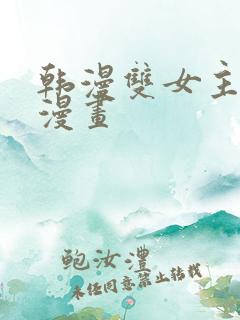 韩漫雙女主
漫畫
鲍汝澧
未经同意禁止转载